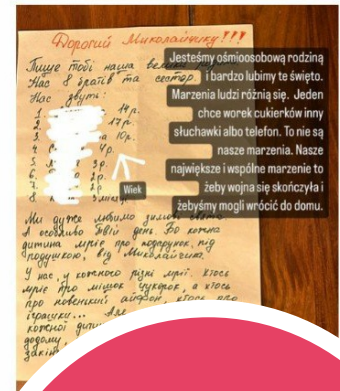 Дорогий Миколайчику!!!
Пише тобі наша велика
Нас 8 братів та сестер.
Нас звуть:
1. 14р.
2. 17р.
3. 10р.
4. 4р.
5. 3р.
6. 2р.
7. 2р
8.
Ми дуже любимо зимові свята
А особливо Твій день. Бо кожна
дитина мріє про подарунок, під
подушкою, від Миколайчика.
У нас, у кожного різні мрії. Хтось
мріє про мішок цукерок, а хтось
про новенький айфон, хтось про
іграшки...
кожної
додому.
Jesteśmy ośmioosobową rodziną
i bardzo lubimy te święto.
Marzenia ludzi różnią się. Jeden
chce worek cukierków inny
słuchawki albo telefon. To nie są
nasze marzenia. Nasze
największe i wspólne marzenie to
żeby wojna się skończyła i
żebyśmy mogli wrócić do domu.
Wiek